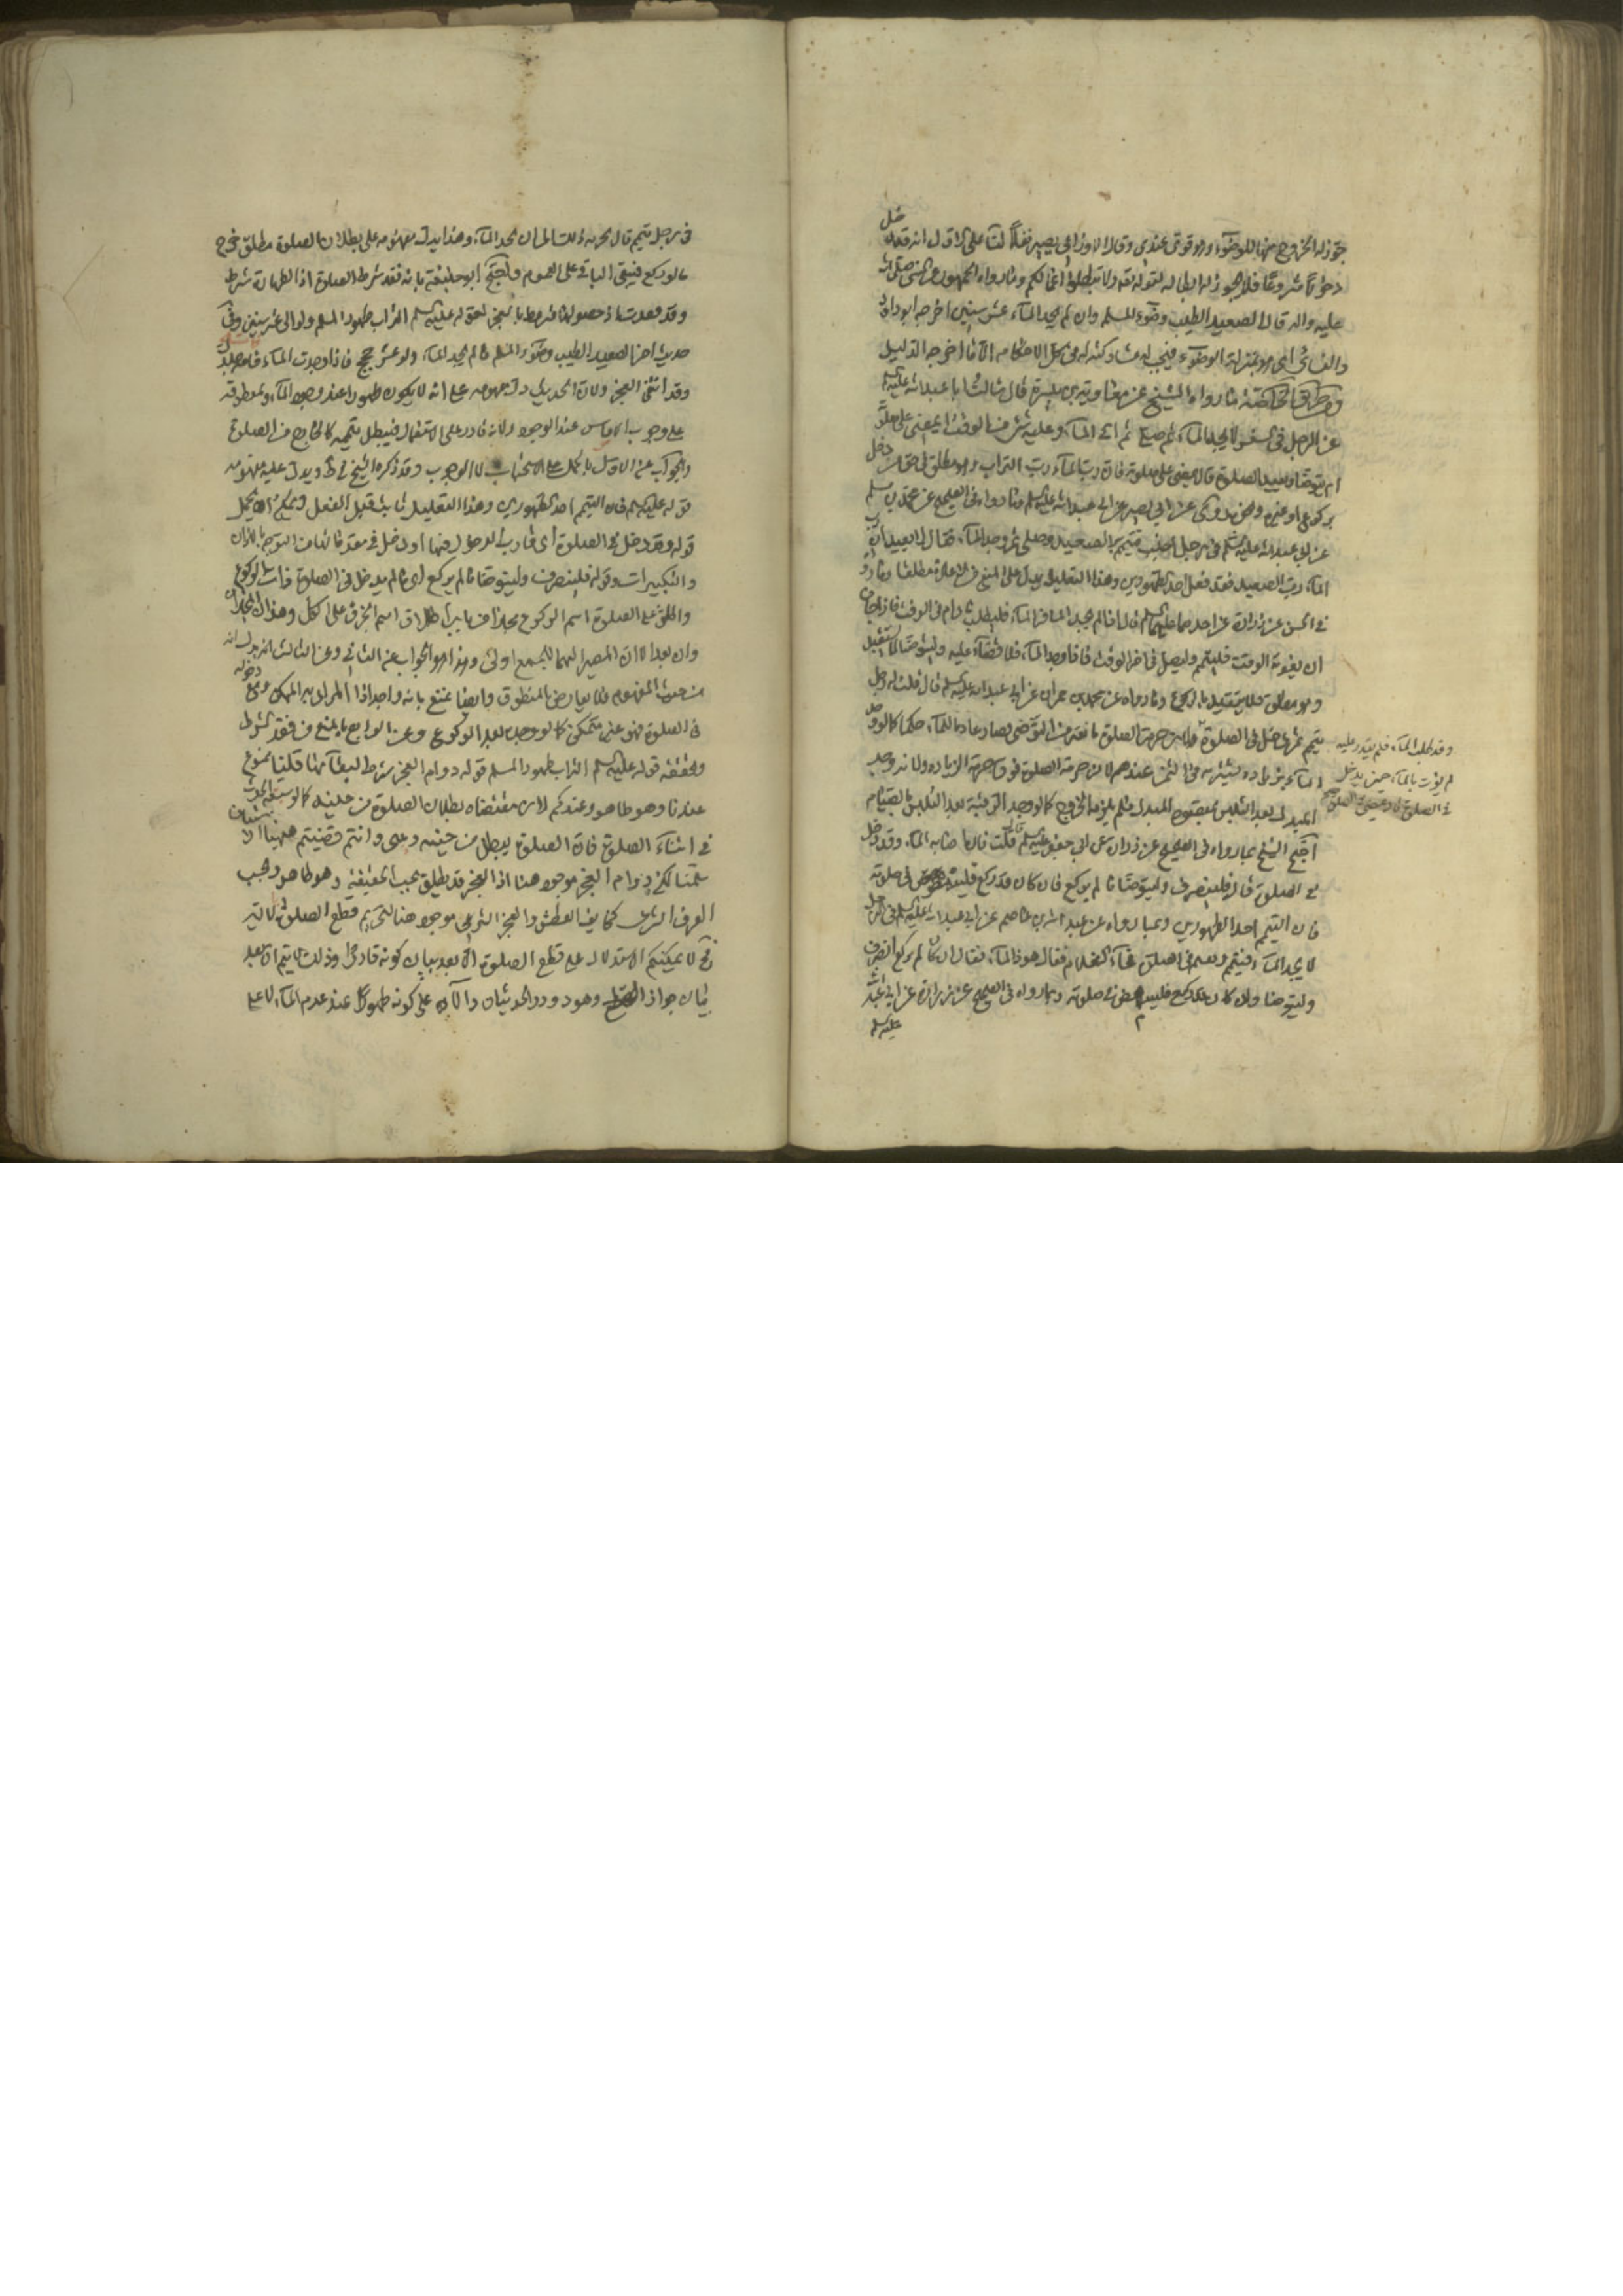 جوز له الخروج منها للوضوء وهو قوى عندى وقال الاوزاعى يصير نفلا لنا على الاول انه قد دخل
دخولا مشروعا فلا يجوز له ابطاله لقوله تعه ولا تبطلوا اعمالكم وما رواه الجمهور عن النبى صلى الله
عليه واله قال الصعيد الطيب وضوء المسلم وان لم يجد الماء عشر سنين اخرجه ابو داود
والنسائى اى هو بمنزلة الوضوء فيجب له مشاركته له فى كل الاحكام الا ما اخرجه الدليل
ومن طريق الخاصة ما رواه الشيخ عن معاوية بن ميسرة قال سالت ابا عبد الله عليه السلم
عن الرجل فى السفر لا يجد الماء ثم صلى ثم اتى الماء وعليه شئ من الوقت ايمضى على صلوته
ام يتوضا ويعيد الصلوة قال يمضى على صلوته فان رب الماء رب التراب وهو مطلق فى حق من دخل
بركوع او غيره ونحوه روى عن ابى بصير عن ابى عبد الله عليه السلم وما رواه فى الصحيح عن محمد بن مسلم
عن ابى عبد الله عليه السلم فى رجل اجنب فتيمم بالصعيد وصلى ثم وجد الماء فقال لا يعيد ان رب
الماء رب الصعيد فقد فعل احد الطهورين وهذا التعليل يدل على المنع من الاعادة مطلقا وما رواه
فى الحسن عن زرارة عن احدهما عليهما السلم قال اذا لم يجد المسافر الماء فليطلب ما دام فى الوقت فاذا خاف
ان يفوته الوقت فليتيمم وليصل فى اخر الوقت فاذا وجد الماء فلا قضاء عليه وليتوضا لما يستقبل
وهو مطلق فلا يتقيد بالركوع وما رواه عن محمد بن حمران عن ابى عبد الله عليه السلم قال قلت له رجل
تيمم ثم دخل فى الصلوة ولان حرمة الصلوة مانعة من التوضى فصار عادما للماء حكما كما لو وجد
وقد طلب الماء فلم يقدر عليه
ثم يؤتى بالماء حين يدخل
فى الصلوة قال يمضى فى الصلوة
الماء بزيادة يشتريه فى الثمن عندهم لان حرمة الصلوة فوق حرمة الزيادة ولانه وجد
المبدل بعد التلبس بمقصود البدل فلم يلزمه الخروج كما لو وجد الرقبة بعد التلبس بالصيام
احتج الشيخ بما رواه فى الصحيح عن زرارة عن ابى جعفر عليه السلم قال قلت فان اصاب الماء وقد دخل
فى الصلوة قال فلينصرف وليتوضا ما لم يركع فان كان قد ركع فليمض فى صلوته
فان التيمم احد الطهورين وبما رواه عن عبد الله بن عاصم عن ابى عبد الله عليه السلم فى الرجل
لا يجد الماء فيتيمم ويقيم فى الصلوة فجاء الغلام فقال هوذا الماء فقال ان كان لم يركع انصرف
وليتوضا وان كان قد ركع فليمض فى صلوته وبما رواه فى الصحيح عن زرارة عن ابى عبد الله
عليه السلم
فى رجل تيمم قال يجزيه ذلك الى ان يجد الماء وهذا يدل بمفهومه على بطلان الصلوة مطلقا خرج
ما لو ركع فيبقى الباقى على العموم واحتج ابو حنيفة بانه فقد شرط الصلوة اذ الطهارة شرط
وقد فقدت اذ حصولها مشروط بالعجز لقوله عليه السلم التراب طهور المسلم ولو الى عشر سنين وفى
حديث اخر الصعيد الطيب وضوء المسلم ما لم يجد الماء ولو عشر حجج فاذا وجدت الماء فامسه جلدك
وقد انتفى العجز ولان الحديث دل بمفهومه على انه لا يكون طهورا عند وجود الماء وبمنطوقه
على وجوب الامساس عند الوجود ولانه قادر على الاستعمال فيبطل تيممه كالخارج من الصلوة
والجواب عن الاول بالحمل على الاستحباب لا الوجوب وقد ذكره الشيخ فى ط ويدل عليه مفهوم
قوله عليه السلم فان التيمم احد الطهورين وهذا التعليل ثابت قبل الفعل ويمكن ان يحمل
قوله وقد دخل فى الصلوة اى قارب الدخول فيها او دخل فى مقدماتها من التوجه بالاذان
والتكبيرات وقوله فلينصرف وليتوضا ما لم يركع اى ما لم يدخل فى الصلوة ذات الركوع
واطلق على الصلوة اسم الركوع مجازا من باب اطلاق اسم الجزء على الكل وهذان المجازان
وان بعدا الا ان المصير اليهما للجمع اولى وهذا هو الجواب عن الثانى وعن الثالث انه يدل
من حيث المفهوم فلا يعارض المنطوق وايضا نمنع بانه واجد اذ المراد به التمكن ومع دخوله
فى الصلوة فهو غير متمكن كما لو وجد بعد الركوع وعن الرابع بالمنع من فقد الشرط
وتحققه قوله عليه السلم التراب طهور المسلم قوله دوام العجز شرط لبقائها قلنا ممنوع
عندنا وهو ظاهر وعندكم لان مقتضاه بطلان الصلوة من حينه كما لو سبقه الحدث
فى اثناء الصلوة فان الصلوة يبطل من حينه وانتم قضيتم هيهنا
سلمنا لكن دوام العجز موجود هنا اذ العجز قد يطلق بحسب الحقيقة وهو ظاهر وبحسب
العرف الشرعى كخايف العطش والعجز الشرعى موجود هنا لتحريم قطع الصلوة لا يقال
لا يمكنكم الاستدلال على قطع الصلوة الا بعد بيان كونه قادرا وذلك لا يتم الا بعد
بيان جواز القطع وهو دور والحديثان دالان على كونه طهورا عند عدم الماء لا على